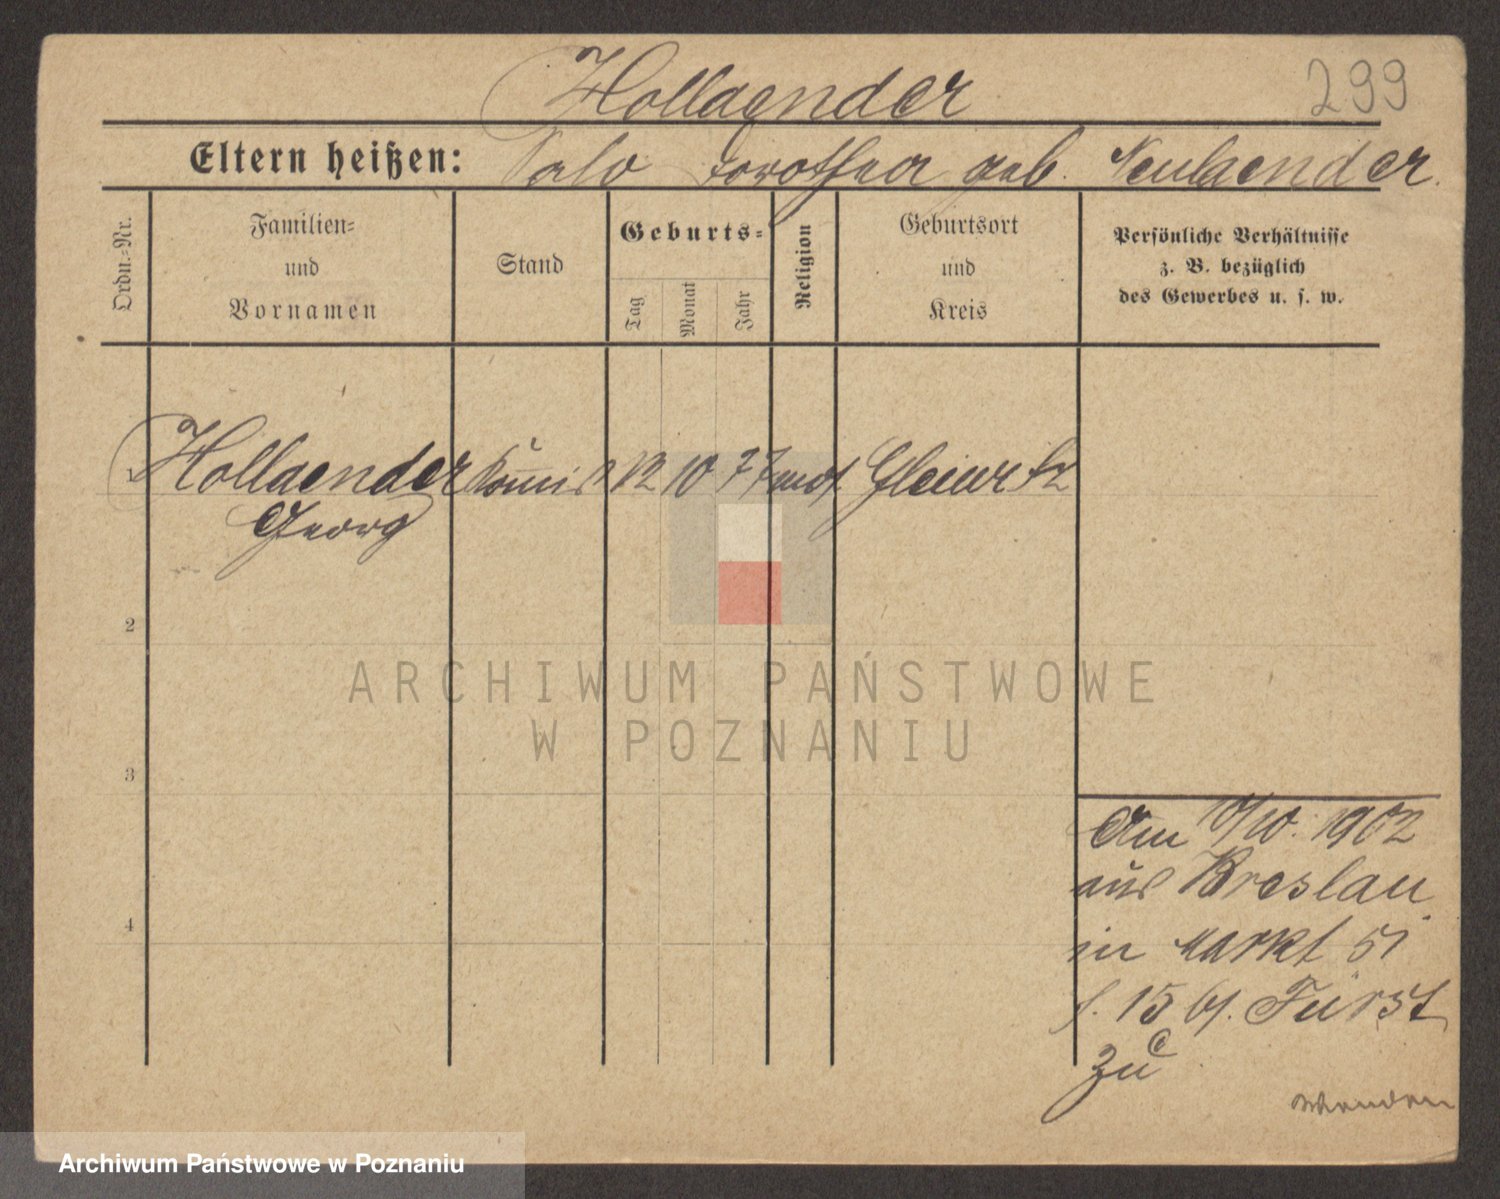 Hollaender 299
Eltern heißen: Salo Dorothea geb. Neulaender.
Ordn.-Nr.
Familien-
und
Vornamen
Stand
Geburts-
Tag
Monat
Jahr
Religion
Geburtsort
und
Kreis
Persönliche Verhältnisse
z. B. bezüglich
des Gewerbes u. s. w.
1 Hollaender Kommis 12 10 77 mos. Gleiwitz
Georg
2
3
4
Am /10. 1902
aus Breslau
in Markt 51
15 Fürst
zu
Wenden
ARCHIWUM PAŃSTWOWE
W POZNANIU
Archiwum Państwowe w Poznaniu